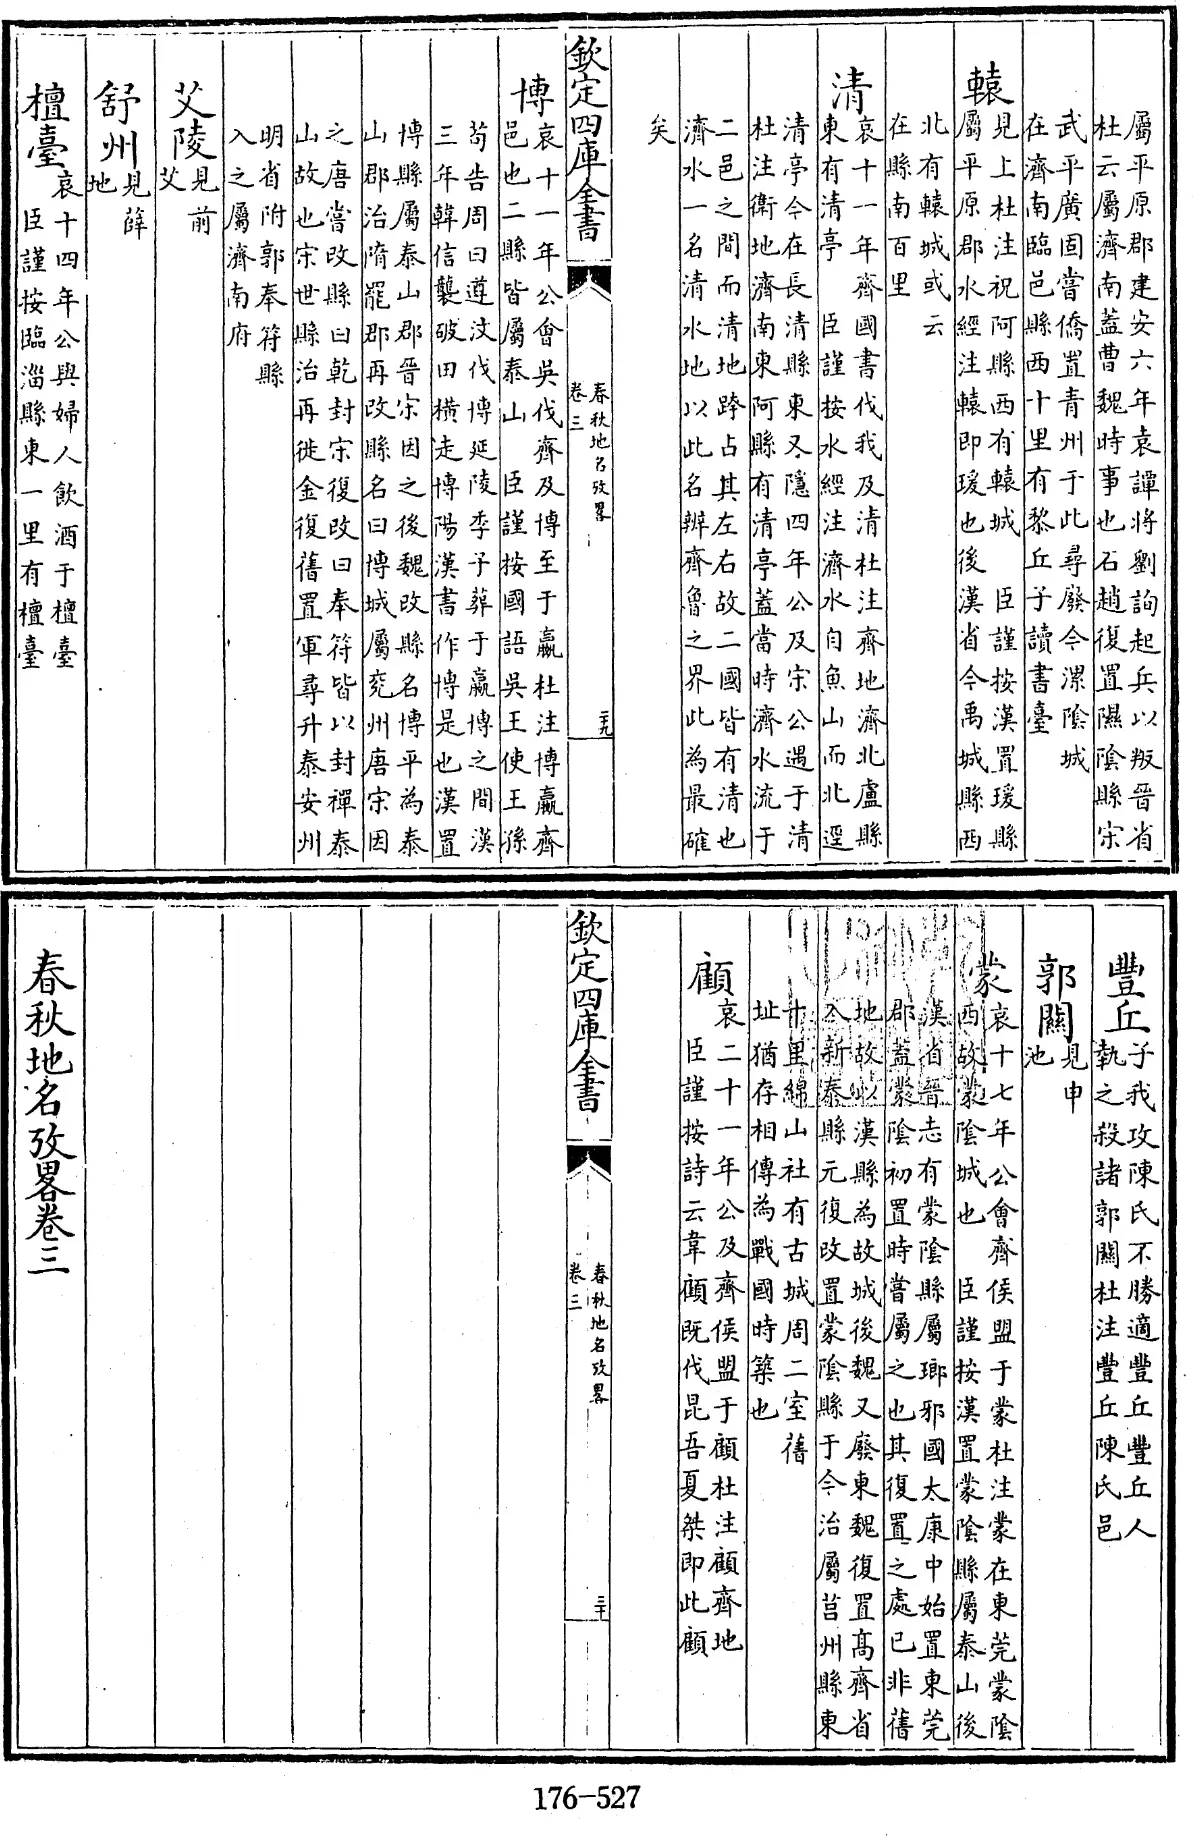 屬平原郡建安六年袁譚將劉詢起兵以叛晉省
杜云屬濟南蓋曹魏時事也石趙復置隰陰縣宋
武平廣固嘗僑置青州于此尋廢今漯陰城
在濟南臨邑縣西十里有黎丘子讀書臺
轅
見上杜注祝阿縣西有轅城 臣謹按漢置瑗縣
屬平原郡水經注轅即瑗也後漢省今禹城縣西
北有轅城或云
在縣南百里
清
哀十一年齊國書伐我及清杜注齊地濟北盧縣
東有清亭 臣謹按水經注濟水自魚山而北逕
清亭今在長清縣東又隱四年公及宋公遇于清
杜注衛地濟南東阿縣有清亭蓋當時濟水流于
二邑之間而清地跨占其左右故二國皆有清也
濟水一名清水地以此名辨齊魯之界此為最確
矣
欽定四庫全書
春秋地名攷畧
卷三
二十九
博
哀十一年公會吳伐齊及博至于嬴杜注博嬴齊
邑也二縣皆屬泰山 臣謹按國語吳王使王孫
苟告周曰遵汶伐博延陵季子葬于嬴博之間漢
三年韓信襲破田橫走博陽漢書作博是也漢置
博縣屬泰山郡晉宋因之後魏改縣名博平為泰
山郡治隋罷郡再改縣名曰博城屬兖州唐宋因
之唐嘗改縣曰乾封宋復改曰奉符皆以封禪泰
山故也宋世縣治再徙金復舊置軍尋升泰安州
明省附郭奉符縣
入之屬濟南府
艾陵
見前
艾
舒州
見薛
地
檀臺
哀十四年公與婦人飲酒于檀臺
臣謹按臨淄縣東一里有檀臺
豐丘
子我攻陳氏不勝適豐丘豐丘人
執之殺諸郭關杜注豐丘陳氏邑
郭關
見申
池
蒙
哀十七年公會齊侯盟于蒙杜注蒙在東莞蒙陰
西故蒙陰城也 臣謹按漢置蒙陰縣屬泰山後
漢省晉志有蒙陰縣屬瑯邪國太康中始置東莞
郡蓋蒙陰初置時嘗屬之也其復置之處已非舊
地故以漢縣為故城後魏又廢東魏復置高齊省
入新泰縣元復改置蒙陰縣于今治屬莒州縣東
十里綿山社有古城周二室舊
址猶存相傳為戰國時築也
顧
哀二十一年公及齊侯盟于顧杜注顧齊地
臣謹按詩云韋顧既伐昆吾夏桀即此顧
欽定四庫全書
春秋地名攷畧
卷三
三十
春秋地名攷畧卷三
176-527